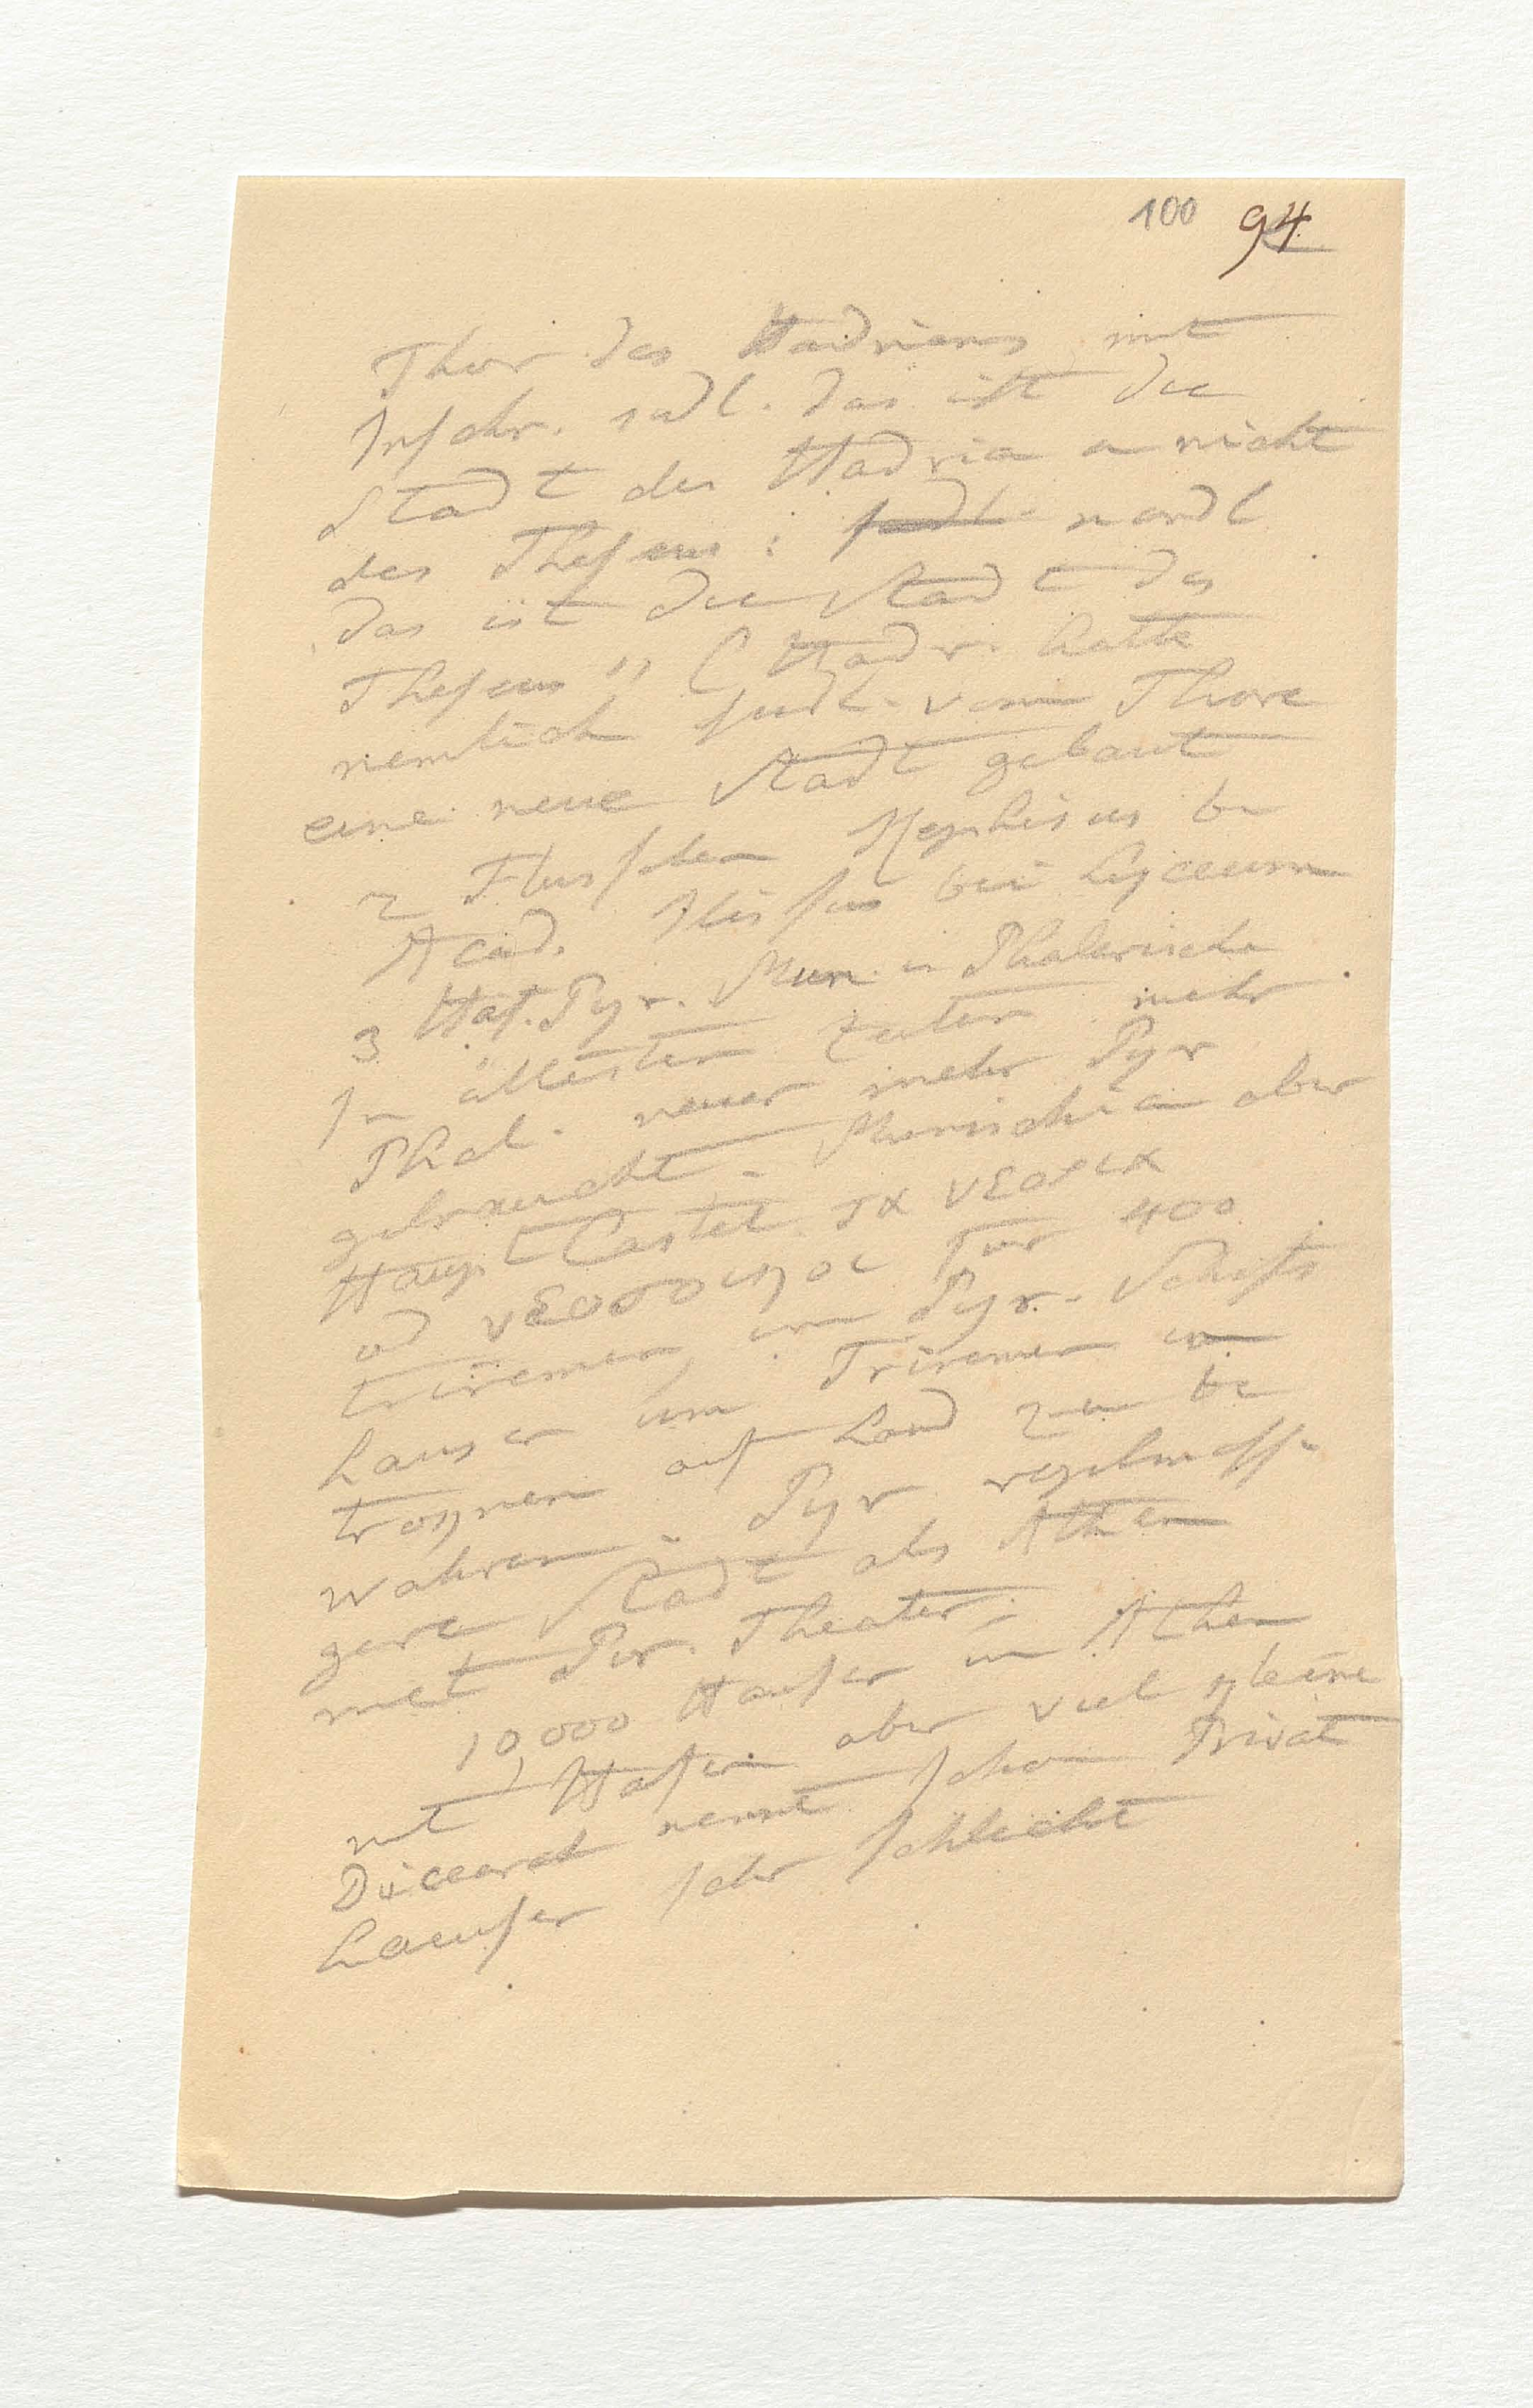 100 94
Thor des Hadrians mit
Inschr. südl. das ist die
Stadt des Hadria u nicht
des Theseus: südl. nordl
das ist die Stadt des
Theseus" (Hadr. hatte
nemlich südl. vom Thore
eine neue Stadt gebaut
2 Flusschen Kephisus be
Acad. Ilissus bei Lyceum
3 Haf. Pyr. Mun. u Phalerische
In ältesten Zeiten mehr
Phal. neuer mehr Pyr
gebraucht - Munichia aber
Haupt Castel. τα νεορια
od νεοσοικοι für 400
triremen, im Pyr. Schifs
hauser um Triremen im
trocknen auf Land zu be
wahren - Pyr regelmassi
gere Stadt als Athen
mit Pir. Theater.
10,000 Hauser in Athen
mit Hafen aber viel kleine
Dicearch nennt schon Privat
hauser sehr schlecht